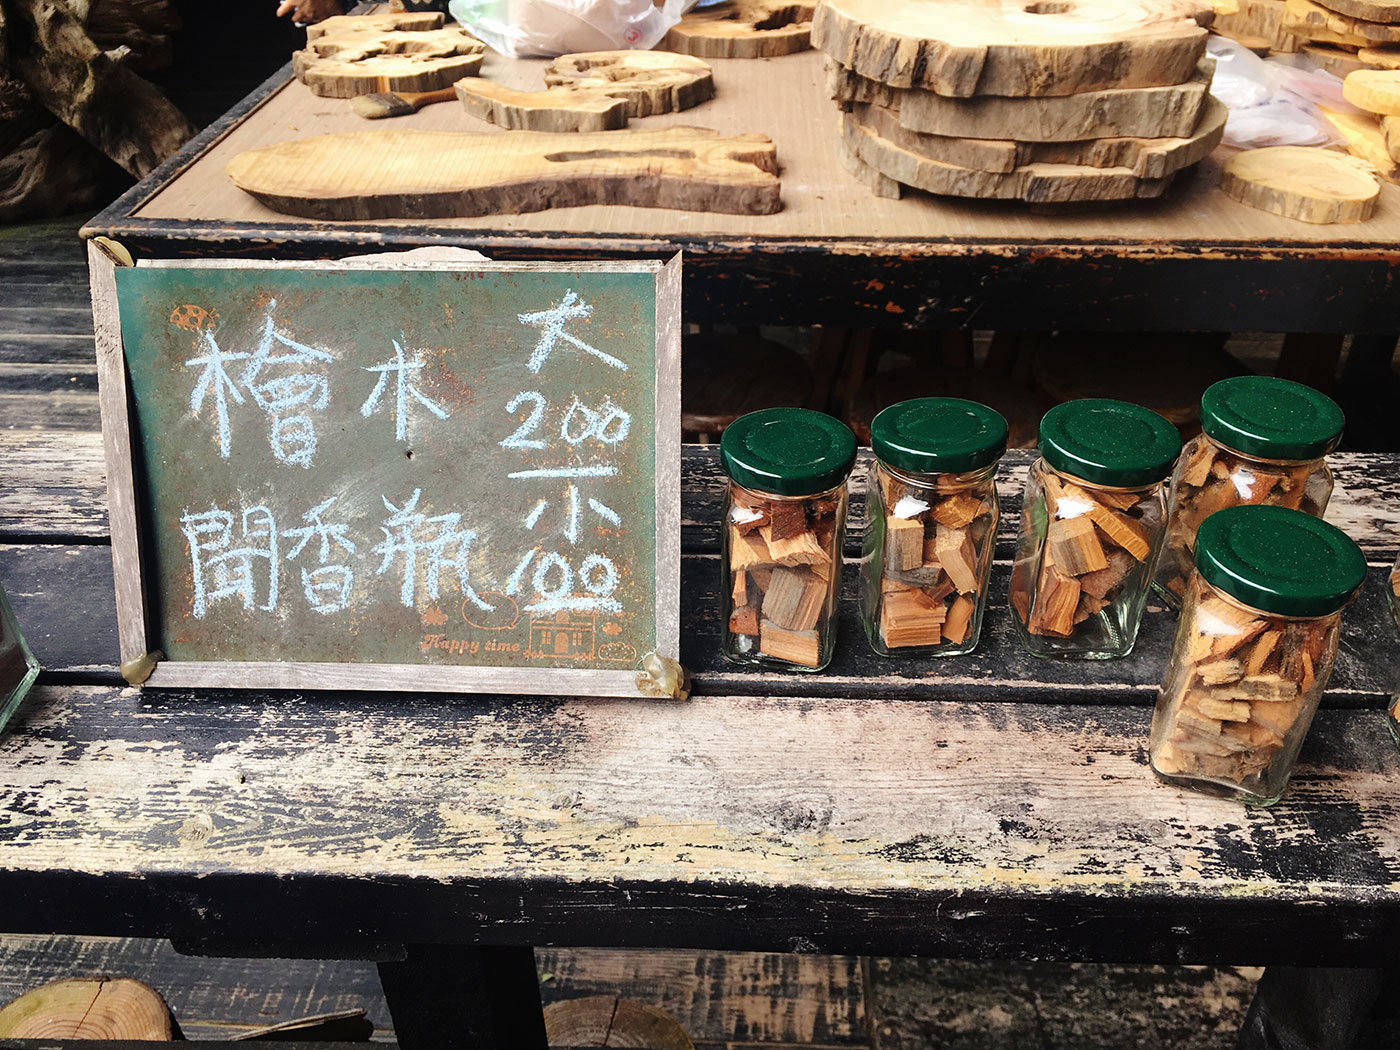 檜木
聞香瓶
大
200
小
100
Happy time